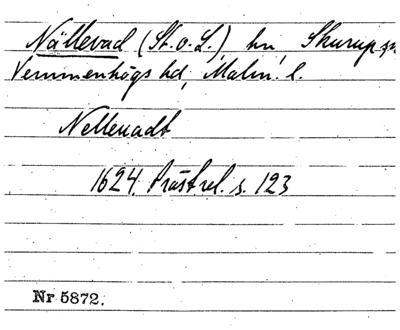 Nällevad (St. o. L.) hn Skurup sn
Vemmenhögs hd, Malm. l.
Nelleuadt
1624. Prästrel. s. 123
Nr 5872.